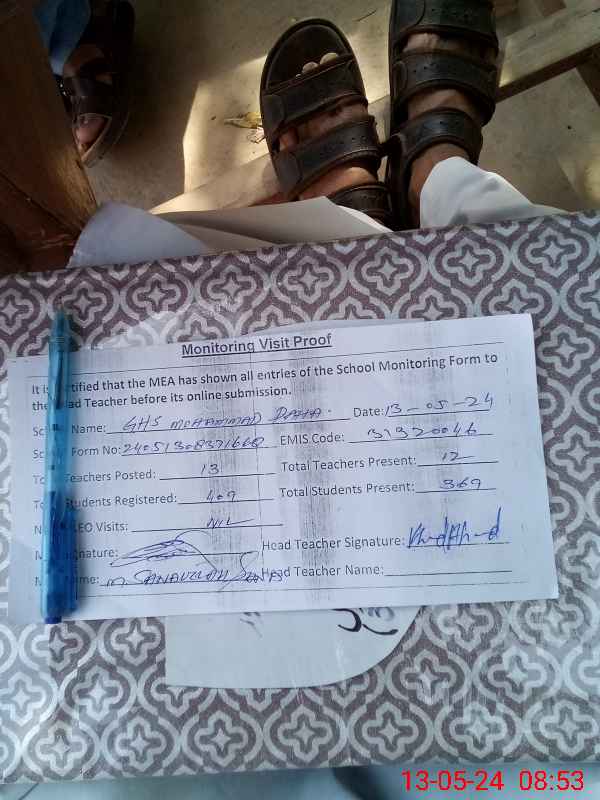 Monitoring Visit Proof
It is certified that the MEA has shown all entries of the School Monitoring Form to
the Head Teacher before its online submission.
School Name: GHS MOHAMMAD Date: 13-05-24
School Form No: EMIS Code: 31320046
Total Teachers Posted: 13 Total Teachers Present: 12
Total Students Registered: 409 Total Students Present: 369
EO Visits: NIL
Signature: Head Teacher Signature:
Name: M. SANAULLAH Head Teacher Name:
13-05-24 08:53